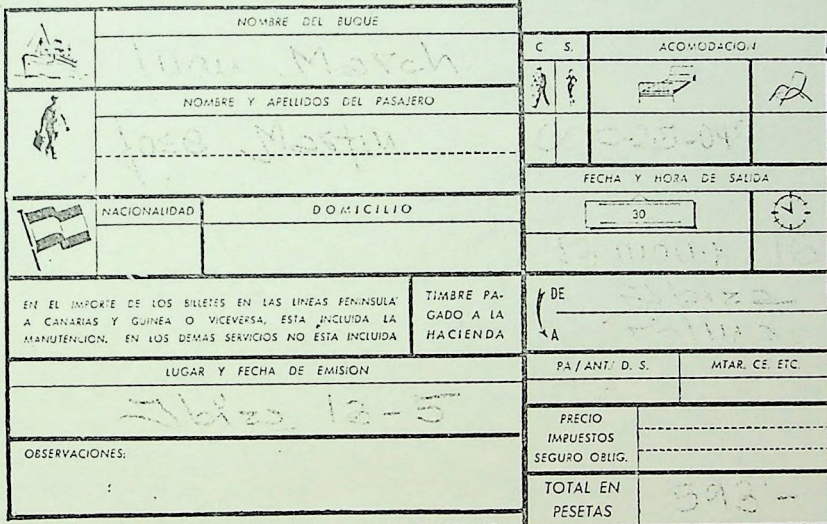 NOMBRE DEL BUQUE
NOMBRE Y APELLIDOS DEL PASAJERO
NACIONALIDAD
DOMICILIO
EN EL IMPORTE DE LOS BILLETES EN LAS LINEAS PENINSULA
A CANARIAS Y GUINEA O VICEVERSA, ESTA INCLUIDA LA
MANUTENCION. EN LOS DEMAS SERVICIOS NO ESTA INCLUIDA
TIMBRE PA-
GADO A LA
HACIENDA
LUGAR Y FECHA DE EMISION
OBSERVACIONES:
C S.
ACOMODACION
FECHA Y HORA DE SALIDA
30
DE
A
PA / ANT. D. S.
MTAR. CE. ETC.
PRECIO
IMPUESTOS
SEGURO OBLIG.
TOTAL EN
PESETAS